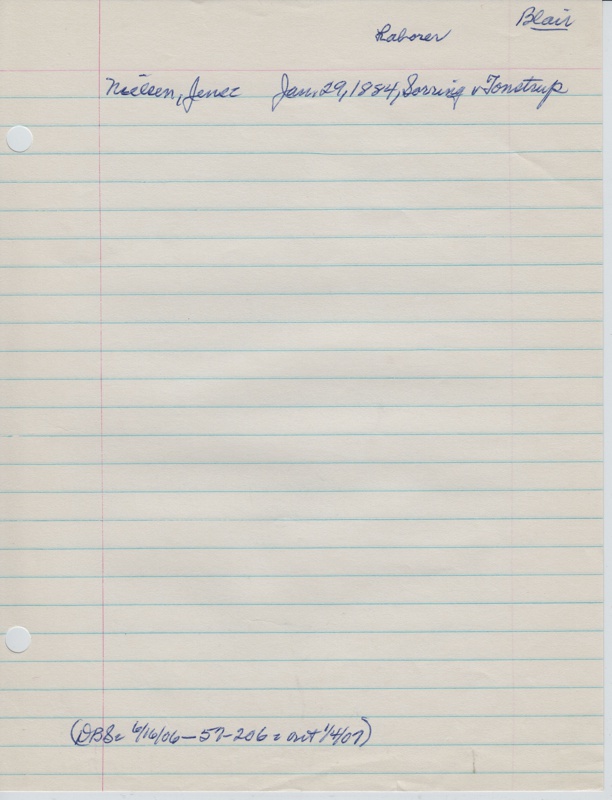 Blair
Laborer
Nielsen, Jens: Jan. 29, 1884, Sorring v Tonstrup
(DBS: 6/16/06—57-206: out 1/4/07)